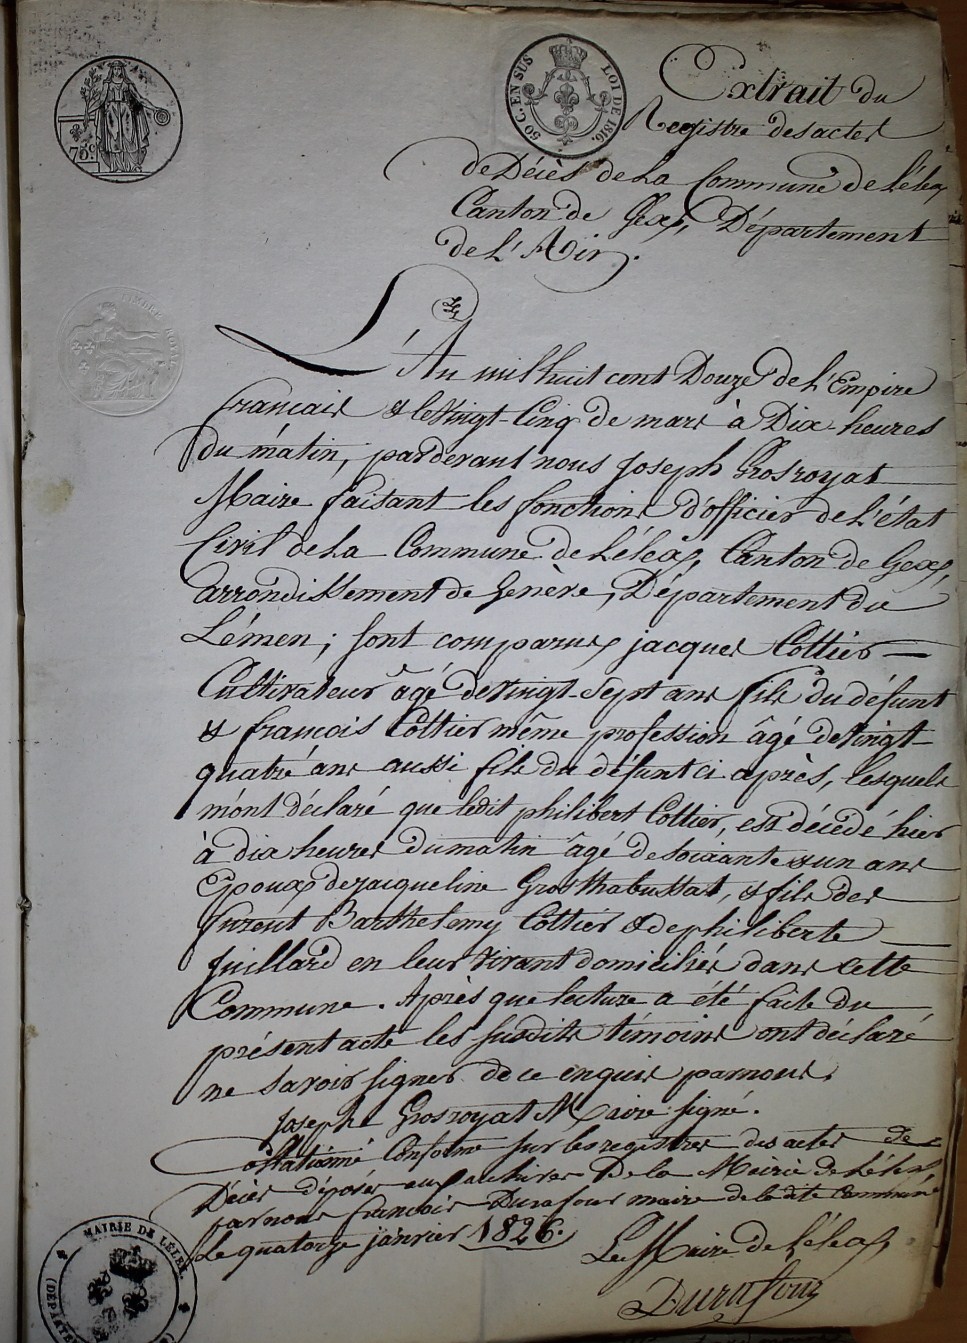 75 c.
50 C. EN SUS LOI DE 1816.
TIMBRE ROYAL
Extrait du
Registre des actes
de Décès de La Commune de Léleax
Canton de Gex, Département
de L'Ain.
L'An mil huit cent Douze de L'Empire
français & le vingt-Cinq de mars à Dix heures
du matin, pardevant nous Joseph Grosroyat
Maire faisant les fonctions d'officier de L'état
Civil de La Commune de Léleax, Canton de Gex,
arrondissement de Genève, Département du
Lémen; sont comparus jacques Cottier
Cultivateur âgé de vingt-sept ans fils du défunt
& françois Cottier même profession âgé de vingt
quatre ans aussi fils du défunt ci après, lesquels
m'ont déclaré que ledit philibert Cottier, est décédé hier
à dix heures du matin âgé de soixante & un ans
Epoux de jacqueline Grosthabussat, & fils des
furent Barthelemy Cottier & de philiberte
Juillard en leur vivant domiciliés dans cette
Commune. Après que lecture a été faite du
présent acte les susdits témoins ont déclaré
ne savoir signer de ce enquis par nous.
Joseph Grosroyat Maire signé.
Collationné Conforme sur les registres des actes de
Décès déposés aux archives De la Mairie de Léleax
par nous françois Durafour maire de la dite Commune
Le quatorze janvier 1826.
Le Maire de Léleax
Durafour
MAIRIE DE LÉLEX
(DÉPARTE